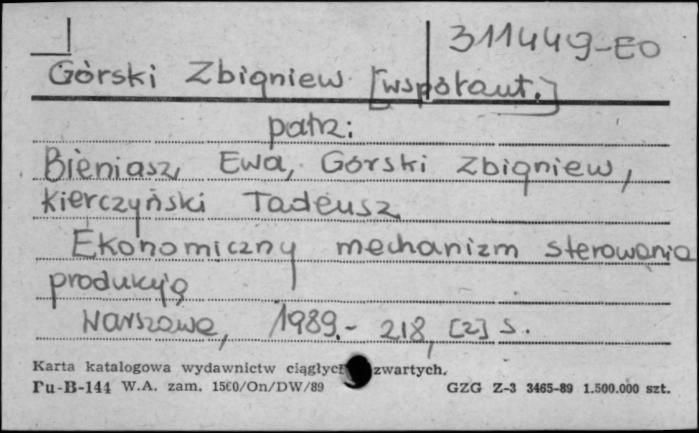 311449-EO
Górski Zbigniew [współaut.]
patrz:
Bieniasz Ewa, Górski Zbigniew,
Kierczyński Tadeusz
Ekonomiczny mechanizm sterowania
produkcją
Warszawa, 1989.- 218, [2] s.
Karta katalogowa wydawnictw ciągłych zwartych.
Pu-B-144 W.A. zam. 1560/On/DW/89 GZG Z-3 3465-89 1.500.000 szt.